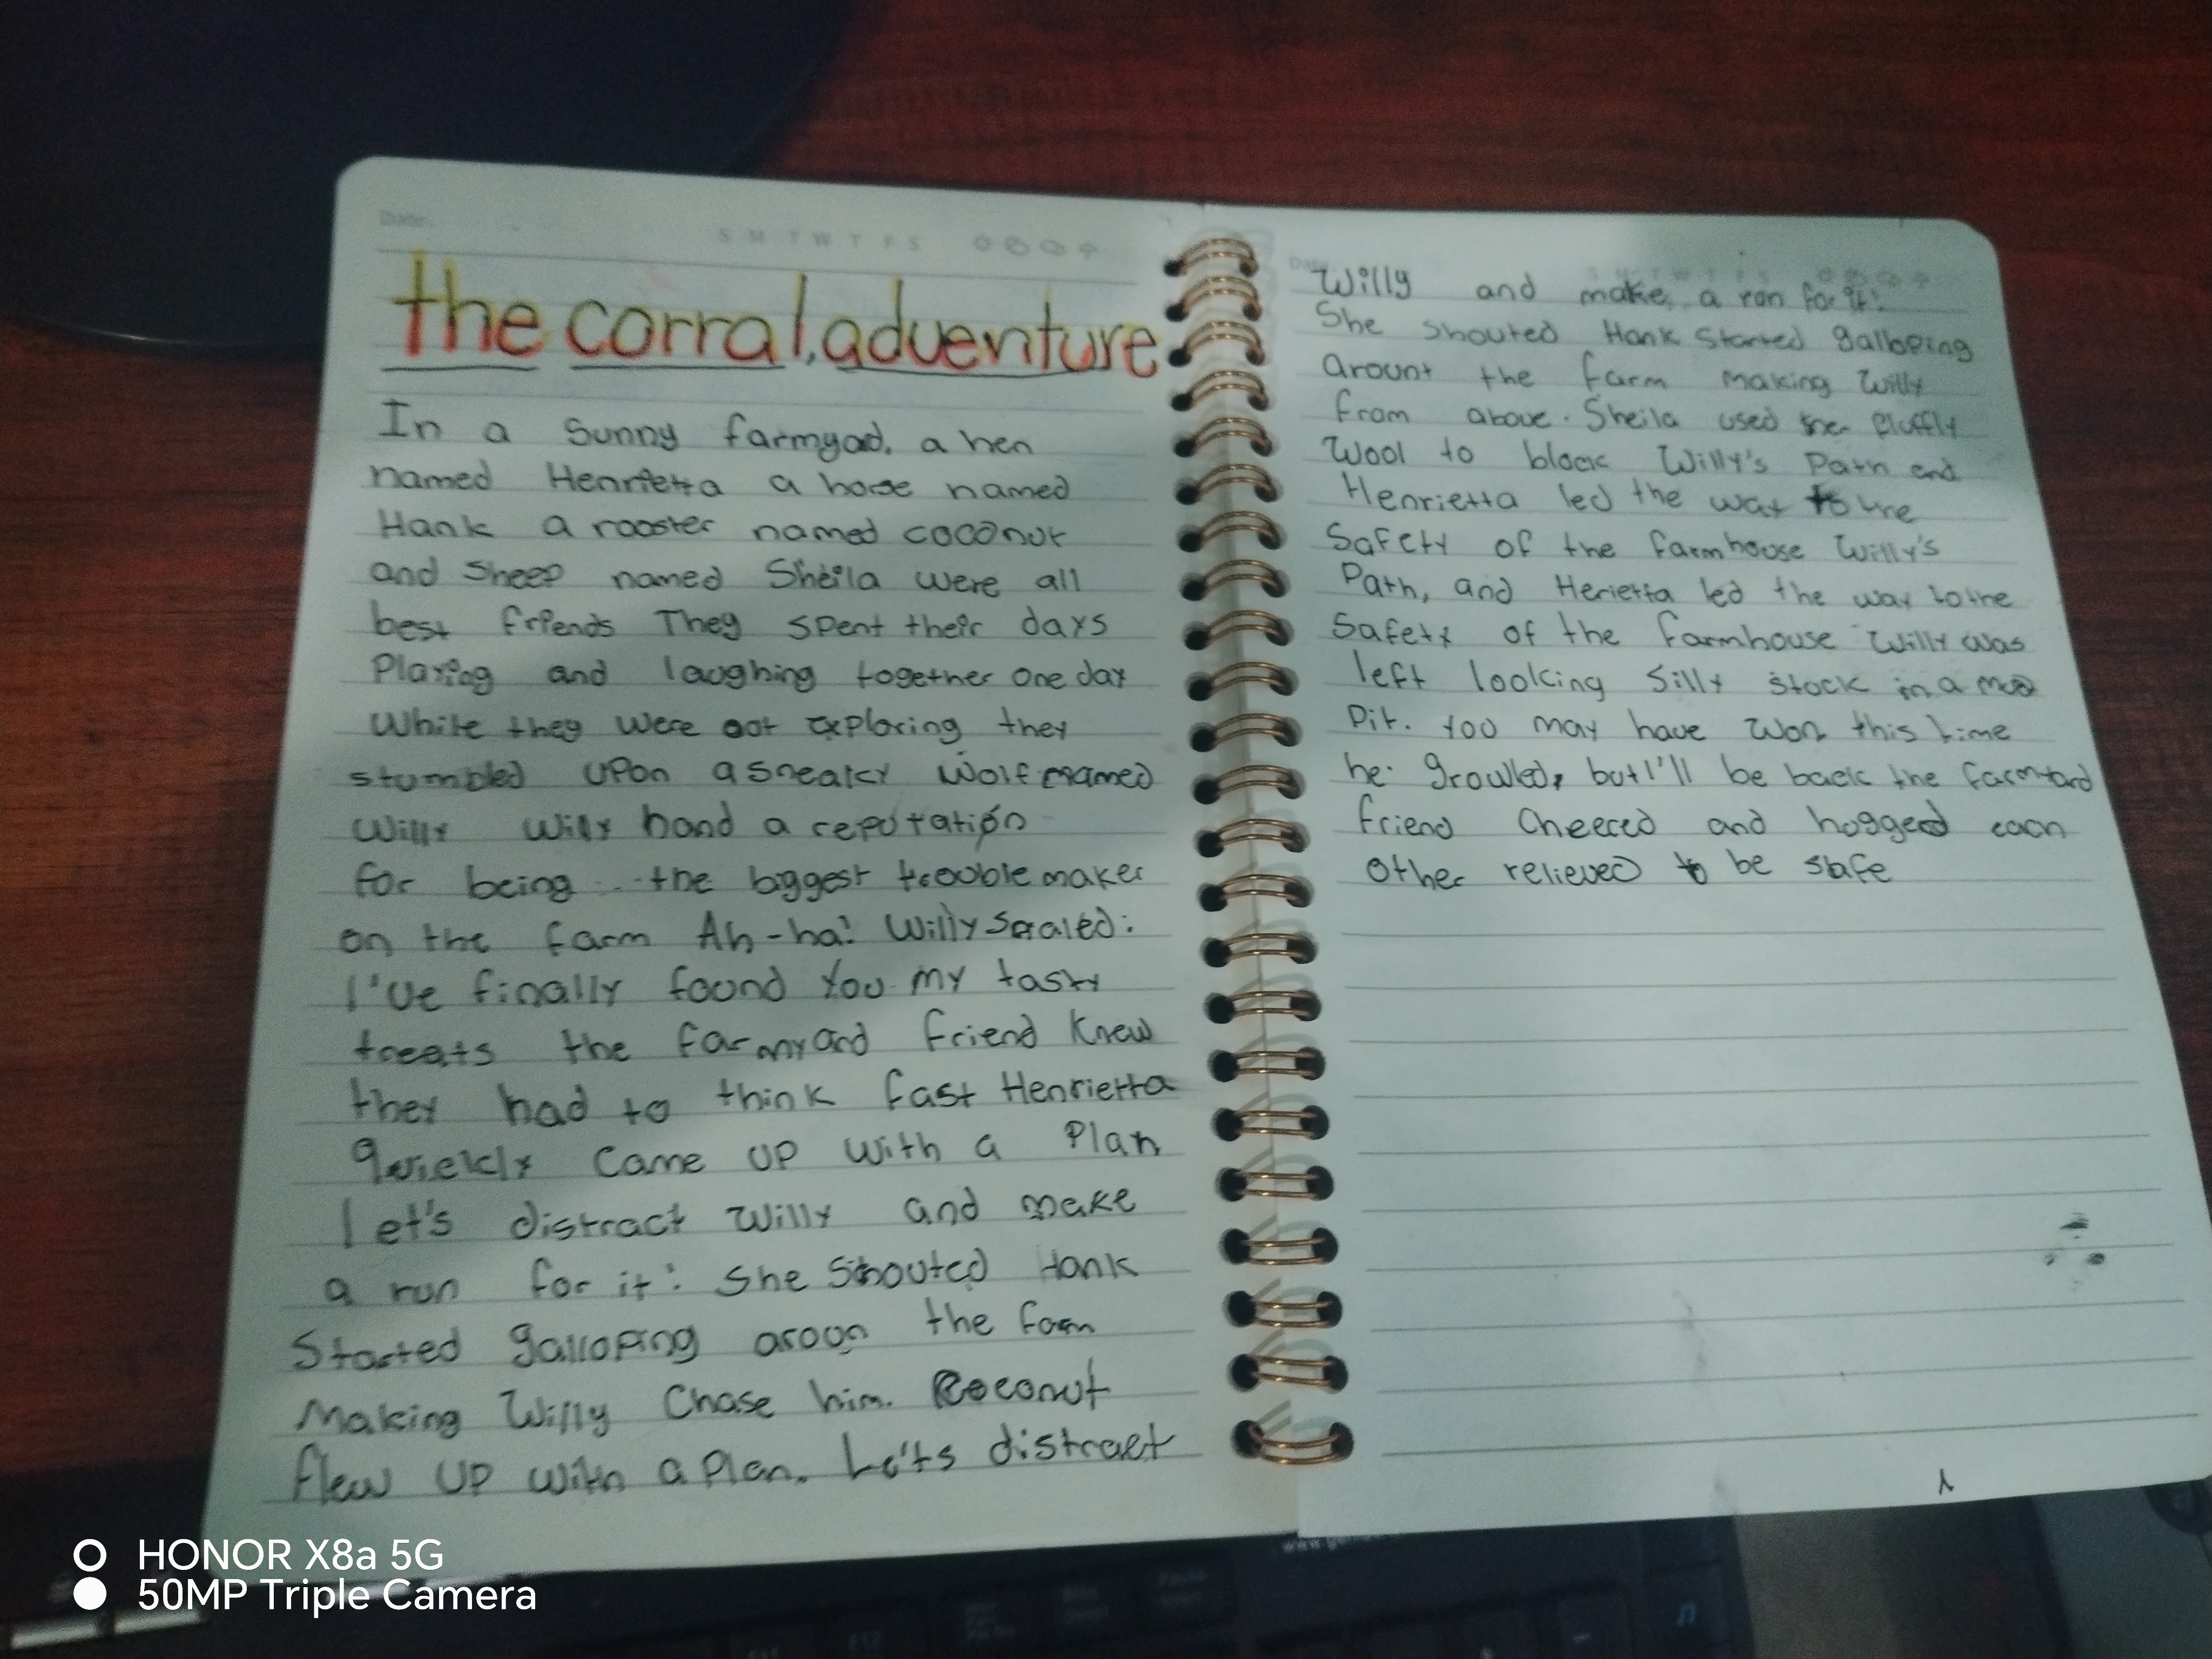 Date:
S M T W T F S
the corral, adventure
In a sunny farmyad, a hen
named Henrietta a horse named
Hank a rooster named coconut
and sheep named Sheila were all
best friends They spent their days
Playing and laughing together one day
While they were out exploring they
stumbled upon a sneaky wolf named
Willy Wily hand a reputation
for being the biggest trouble maker
on the farm Ah-ha! Willy
I've finally found You my tasty
treats the farmyard friend knew
they had to think fast Henrietta
quickly came up with a Plan
let's distract Willy and make
a run for it! She shouted Hank
Started galloping aroun the farm
Making Willy Chase him. Coconut
flew up with a Plan. Let's distract
Willy and make, a run for it!
She shouted Hank Started galloping
arount the farm making Willy
from above. Sheila used her fluffly
Wool to block Willy's Path and
Henrietta led the way to the
Safety of the farmhouse Willy's
Path, and Herietta led the way to the
Safety of the farmhouse Willy was
left looking silly stuck in a mud
Pit. You may have won this time
he. growled, but I'll be back the farmyard
friend cheered and hugged each
other relieved to be safe
HONOR X8a 5G
50MP Triple Camera